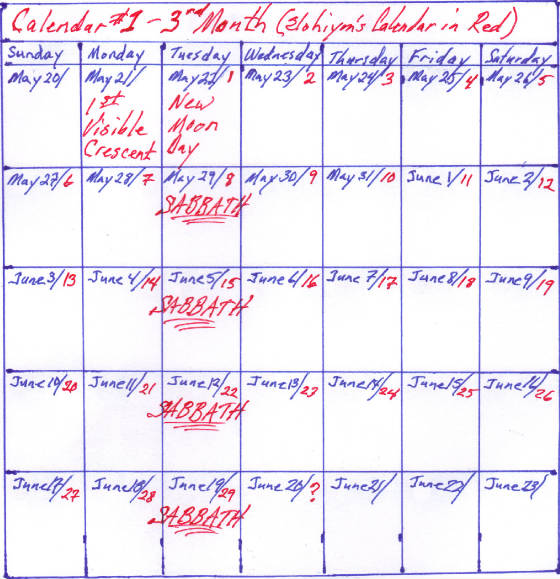 Calendar #1 - 3rd Month (Elohiym's Calendar in Red)
Sunday Monday Tuesday Wednesday Thursday Friday Saturday
May 20/ May 21/ May 22/1 May 23/2 May 24/3 May 25/4 May 26/5
1st Visible Crescent
New Moon Day
May 27/6 May 28/7 May 29/8 May 30/9 May 31/10 June 1/11 June 2/12
SABBATH
June 3/13 June 4/14 June 5/15 June 6/16 June 7/17 June 8/18 June 9/19
SABBATH
June 10/20 June 11/21 June 12/22 June 13/23 June 14/24 June 15/25 June 16/26
SABBATH
June 17/27 June 18/28 June 19/29 June 20/? June 21/ June 22/ June 23/
SABBATH